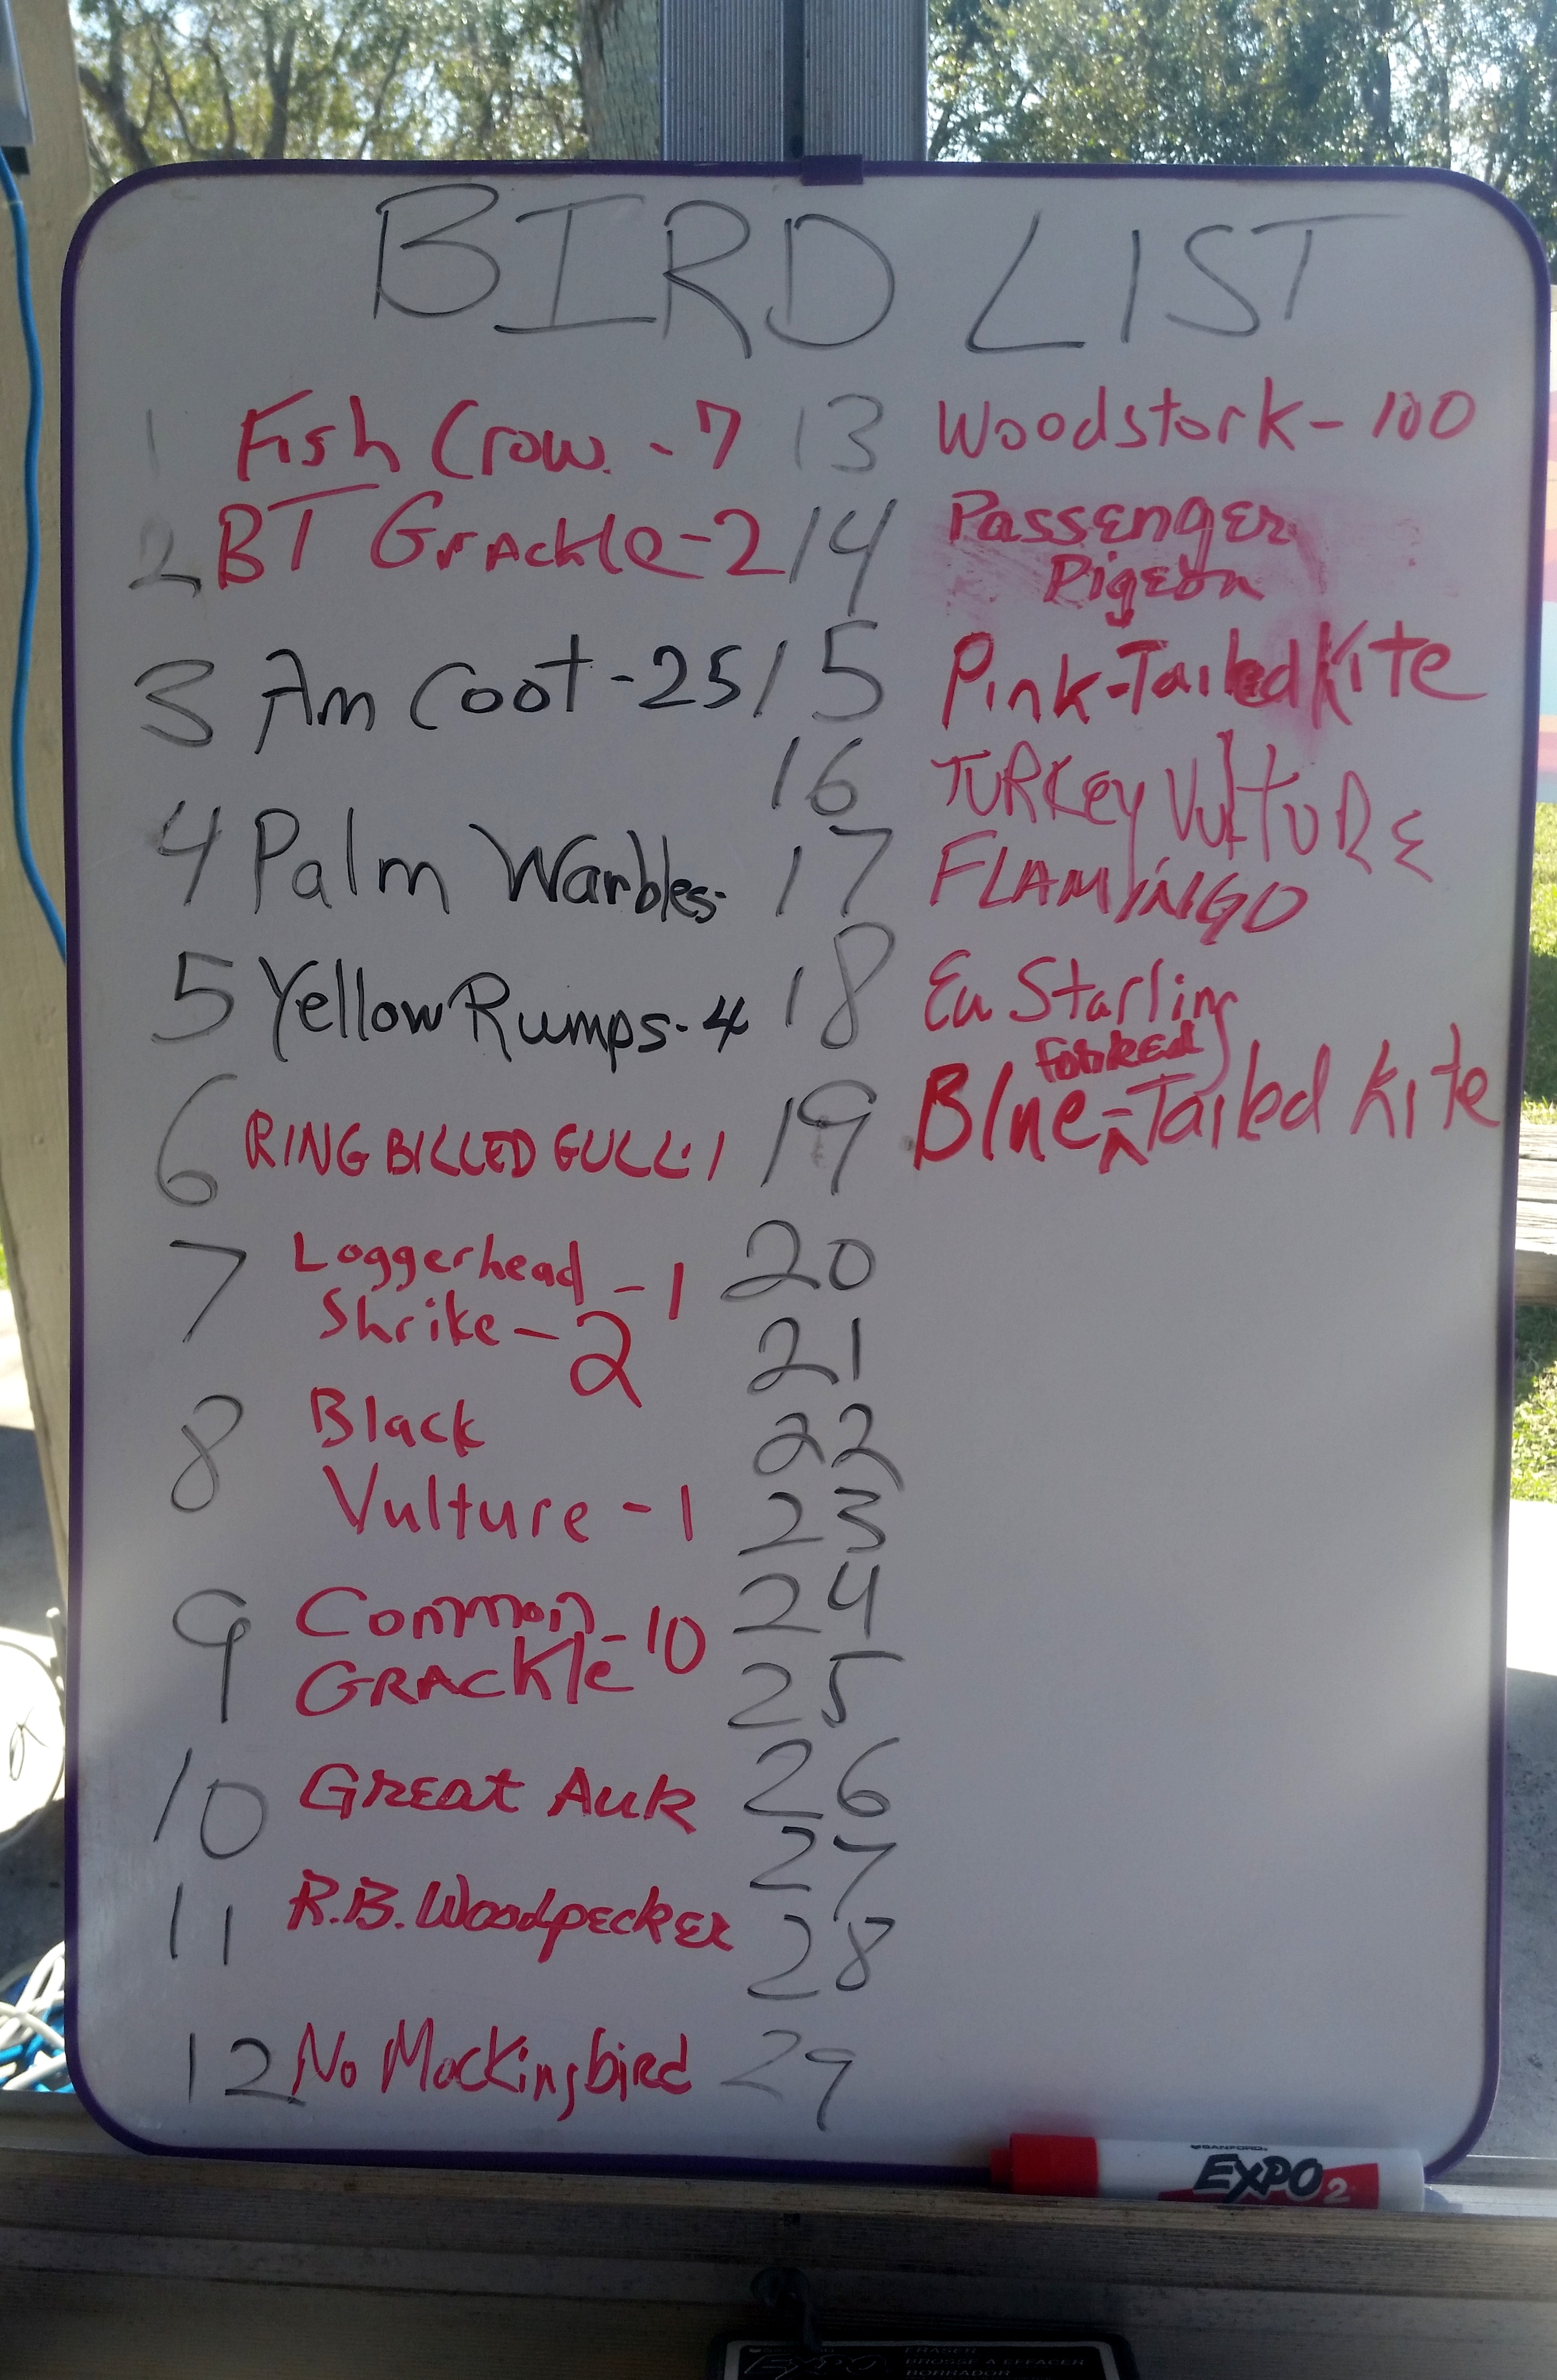 BIRD LIST
1 Fish Crow. - 7
2 BT Grackle - 2
3 Am Coot - 25
4 Palm Warbles -
5 Yellow Rumps - 4
6 RING BILLED GULL : 1
7 Loggerhead - 1
Shrike - 2
8 Black
Vulture - 1
9 Common - 10
GRACKle
10 Great Auk
11 R.B. Woodpecker
12 No Mockingbird
13 Woodstork - 100
14 Passenger
Pigeon
15 Pink-Tailed Kite
16 TURKey VultURE
17 FLAMINGO
18 Eu Starling
forked
19 Blue ^-Tailed Kite
20
21
22
23
24
25
26
27
28
29
SANFORD
EXPO 2
EXPO
ERASER
BROSSE A EFFACER
BORRADOR